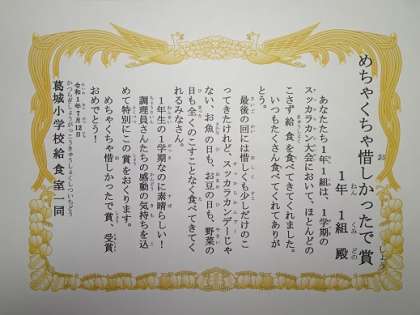 めちゃくちゃ惜しかったで賞
1年1組殿
あなたたち1年1組は、1学期の
スッカラカン大会において、ほとんどの
こさず給食を食べてきてくれました。
いつもたくさん食べてくれてありが
とう。
最後の回には惜しくも少しだけのこ
ってきたけれど、スッカラカンデーじゃ
ない、お魚の日も、お豆の日も、野菜の
日も全くのこすことなく食べてきてく
れるみなさん。
1年生の1学期なのに素晴らしい!
調理員さんたちの感動の気持ちを込
めて特別にこの賞をおくります。
めちゃくちゃ惜しかったで賞、受賞
おめでとう!
令和1年7月12日
葛城小学校給食室一同